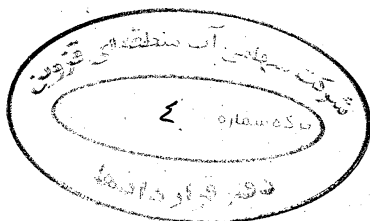 شرکت سهامی آب منطقه‌ای قزوین
برگه شماره ۴
دفتر قراردادها